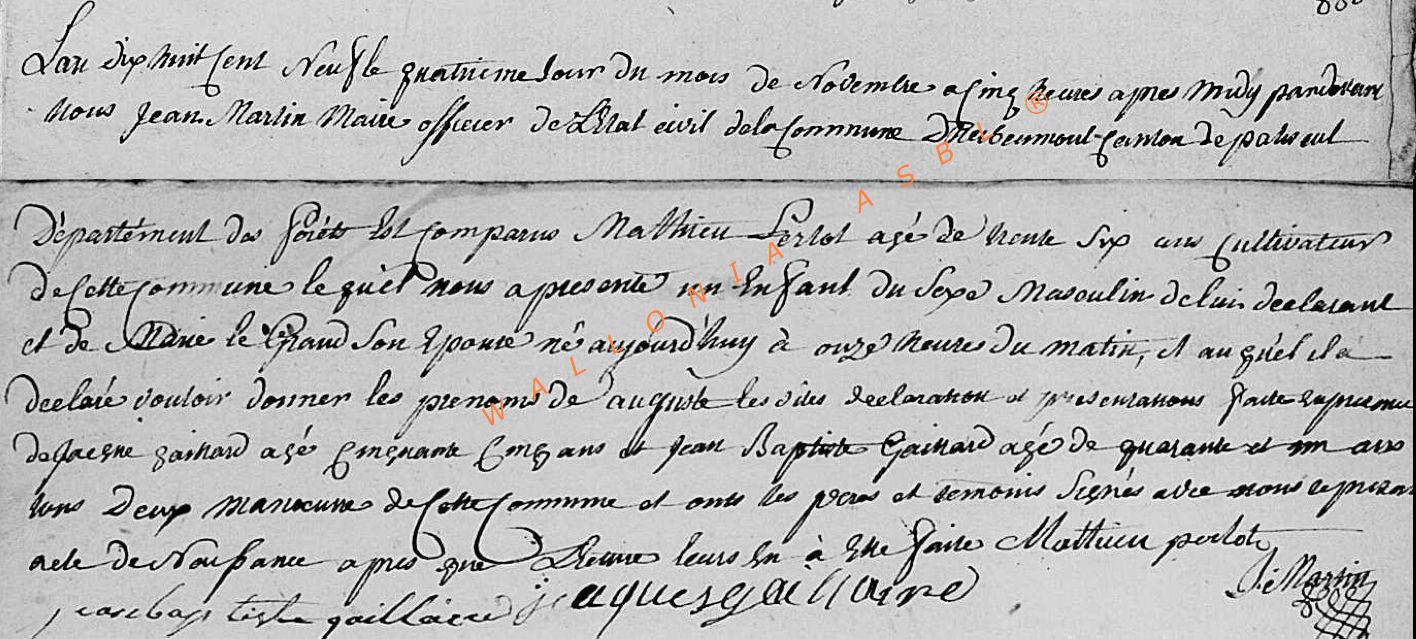 L'an dix huit Cent Neuf le quatrieme Jour du mois de Novembre a Cinq heures apres midy pardevant
Nous Jean Martin Maire officier de L'Etat civil de la Commune D'herbeumont Canton de paliseul
Département des forêts Est Comparus Mathieu Perlot agé de trente Six ans Cultivateur
de Cette Commune le quel nous a presenté un Enfant du Sexe Masculin de lui declarant
et de Marie le Grand Son Epouse né aujourd'huy à onze heures du matin, et au quel il a
declaré vouloir donner les prenoms de auguste les dites declaration et presentations faite En presence
de Jacque gaillard agé Cinquante Cinq ans et Jean Baptiste Gaillard agé de quarante et un ans
tous Deux manœuvre de Cette Commune et onts les peres et temoins Signés avec nous le present
acte de Naissance apres que Lecture leurs En à Eté faite Mathieu perlot
jean bap tiste gaillaird jaques gaillaird J: Martin
WALLONIA ASBL ®